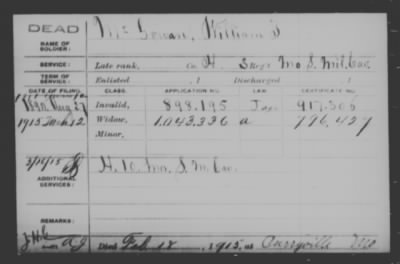 DEAD
NAME OF SOLDIER:
Mc Gowan, William T
SERVICE:
Late rank, Co. H. 3 Reg't Mo S. Mil. Cav.
TERM OF SERVICE:
Enlisted , 1 Discharged , 1
DATE OF FILING. CLASS. APPLICATION NO. LAW. CERTIFICATE NO.
1890 Aug 27 Invalid, 898.195 917.506
1915 Mch 12 Widow, 1.043.336 a 796,457
Minor,
3/10/15
ADDITIONAL SERVICES:
H. 10. Mo. S. M. Cav.
REMARKS:
Died Feb. 1915, at Curryville Mo